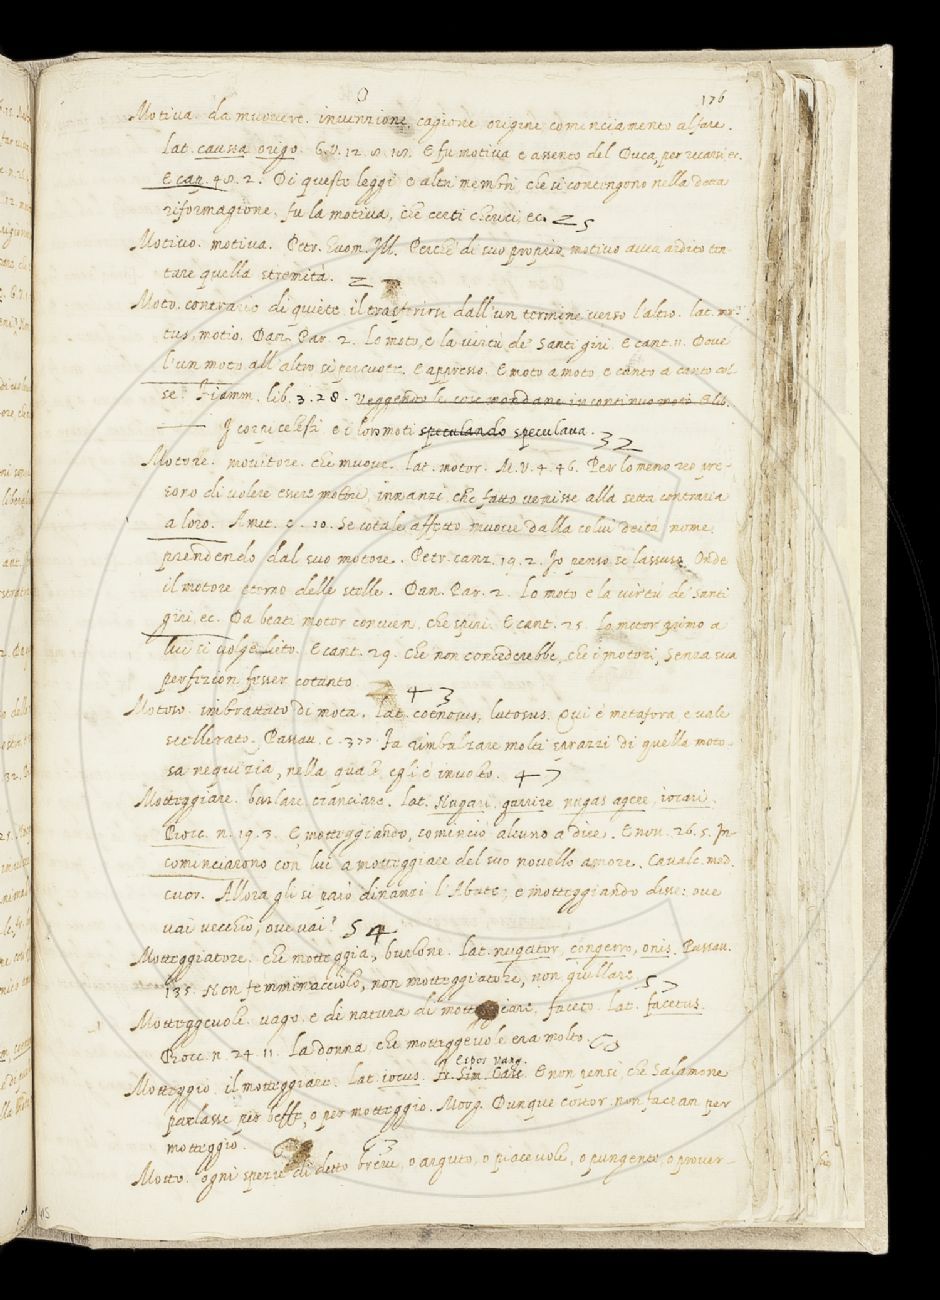 O
176
Motiva. da muovere. invenzione, cagione origine cominciamento al fare.
Lat. caussa origo. G.V. 12. 8. 18. E fu motiva e assento del Duca, per recarsi ec.
E cap. 48. 2. Di queste leggi e altri membri, che si contengono nella detta
riformagione, fu la motiva, che certi cherici ec. 25
Motivo. motiva. Petr. huom. Ill. Perche di suo proprio motivo avea ardito ten-
tare quella stremità. 2
Moto. contrario di quiete, il trasferirsi dall'un termine verso l'altro. lat. mo-
tus, motio. Dan. Par. 2. Lo moto, e la virtù de' santi giri. E cant. 11. Dove
l'un moto all'altro si percuote. E appresso. E moto a moto, e canto a canto col-
se. Fiamm. lib. 3. 28. Veggendo le cose mondane in continuo moto E lib.
I corpi celesti e i lor moti speculando speculava. 32
Motore. movitore. che muove. lat. motor. M.V. 4. 46. Per lo meno reo pre-
sono di volere essere motori, innanzi che fatto venisse alla setta contraria
a loro. Amet. c. 10. Se cotale affetto muove dalla colui deità, nome
prendendo dal suo motore. Petr. canz. 19. 2. Io penso, se lassuso, Onde
il motore eterno delle stelle. Dan. Par. 2. Lo moto e la virtù de' santi
giri, ec. Da beati motor convien, che spiri. E cant. 25. Lo motor primo a
lui si volge lieto. E cant. 29. Che non concederebbe, che i motori, Senza sua
perfizion fusser cotanto. 43
Motoso. imbrattato di mota. Lat. coenosus, lutosus. Qui è metafora, e vale
scellerato. Passav. c. 377. Fa rimbalzare molti sprazzi di quella moto-
sa nequizia, nella quale egli è involto. 47
Motteggiare. burlare, cianciare. Lat. Nugari, garrire nugas agere, iocari.
Bocc. n. 19. 3. E, motteggiando, cominciò alcuno a dire. E nov. 26. 5. In-
cominciarono con lui a motteggiare del suo novello amore. Cavalc. med.
cuor. Allora gli si parò dinanzi l'Abate; e motteggiando disse: ove
vai vecchio, ove vai? 54
Motteggiatore. che motteggia, burlone. Lat. nugator, congerro, onis. Passav.
135. Non femminacciolo, non motteggiatore, non giullare. 57
Motteggevole. vago e di natura di motteggiare, faceto. Lat. facetus.
Bocc. n. 24. 11. La donna, che motteggevole era molto. 60
Espos. Vang.
Motteggio. il motteggiare. Lat. iocus. Fr. Sim. Casc. E non pensi che Salamone
parlasse per beffe, o per motteggio. Morg. Dunque costor non facean per
motteggio. 63
Motto. ogni spezie di detto breve, o arguto, o piacevole, o pungente, o prover-